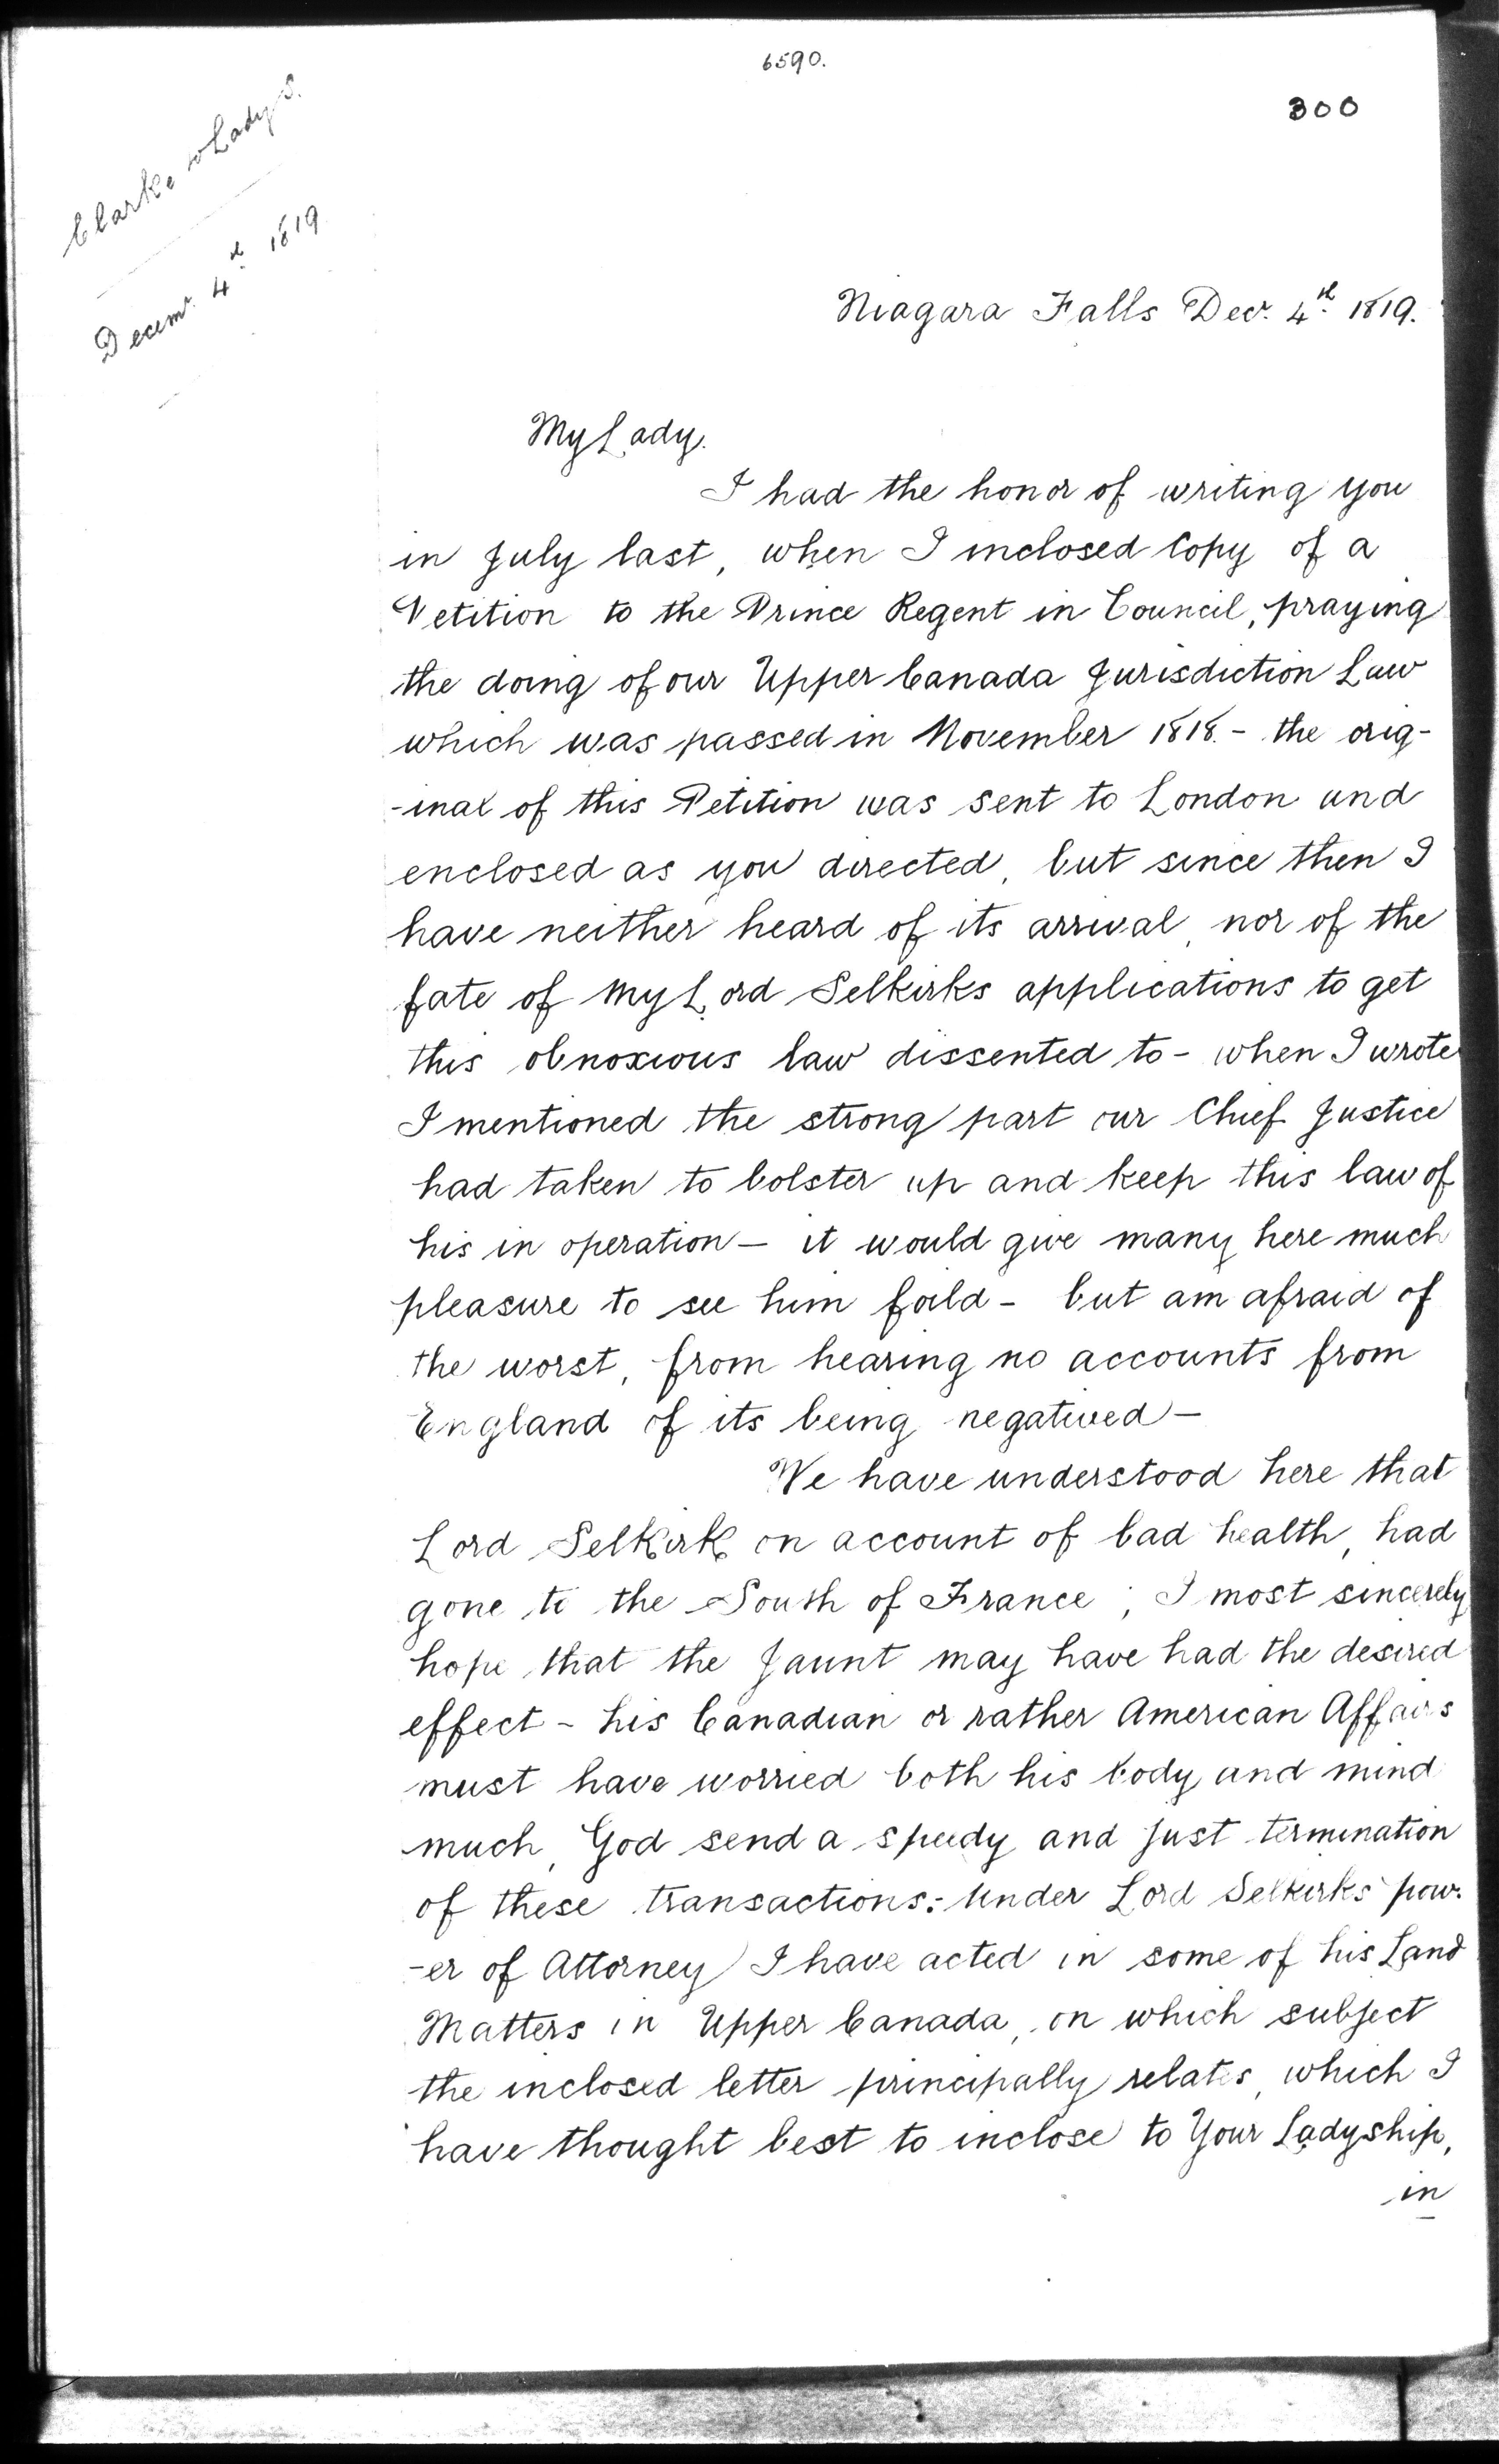 6590.
300
Clarke to Lady S.
Decemr. 4th 1819
Niagara Falls Decr. 4th 1819.
My Lady.
I had the honor of writing you
in July last, when I inclosed Copy of a
Petition to the Prince Regent in Council, praying
the doing of our Upper Canada Jurisdiction Law
which was passed in November 1818. - the orig-
-inal of this Petition was sent to London and
enclosed as you directed, but since then I
have neither heard of its arrival, nor of the
fate of My Lord Selkirks applications to get
this obnoxious law dissented to - when I wrote
I mentioned the strong part our Chief Justice
had taken to bolster up and keep this law of
his in operation — it would give many here much
pleasure to see him foild - but am afraid of
the worst, from hearing no accounts from
England of its being negatived —
We have understood here that
Lord Selkirk on account of bad health, had
gone to the South of France ; I most sincerely
hope that the Jaunt may have had the desired
effect - his Canadian or rather American Affairs
must have worried both his body and mind
much, God send a speedy and just termination
of these transactions:- Under Lord Selkirks pow-
-er of Attorney I have acted in some of his Land
Matters in Upper Canada, on which subject
the inclosed letter principally relates, which I
have thought best to inclose to Your Ladyship,
in